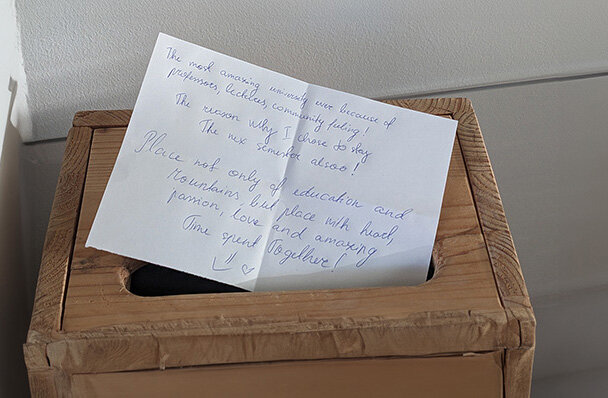 The most amazing university ever because of
professors, lectures, community feeling!
The reason why I chose to stay
The nex semester alsoo!
Place not only of education and
mountains, but place with heart,
passion, love and amazing
Time spent Together!